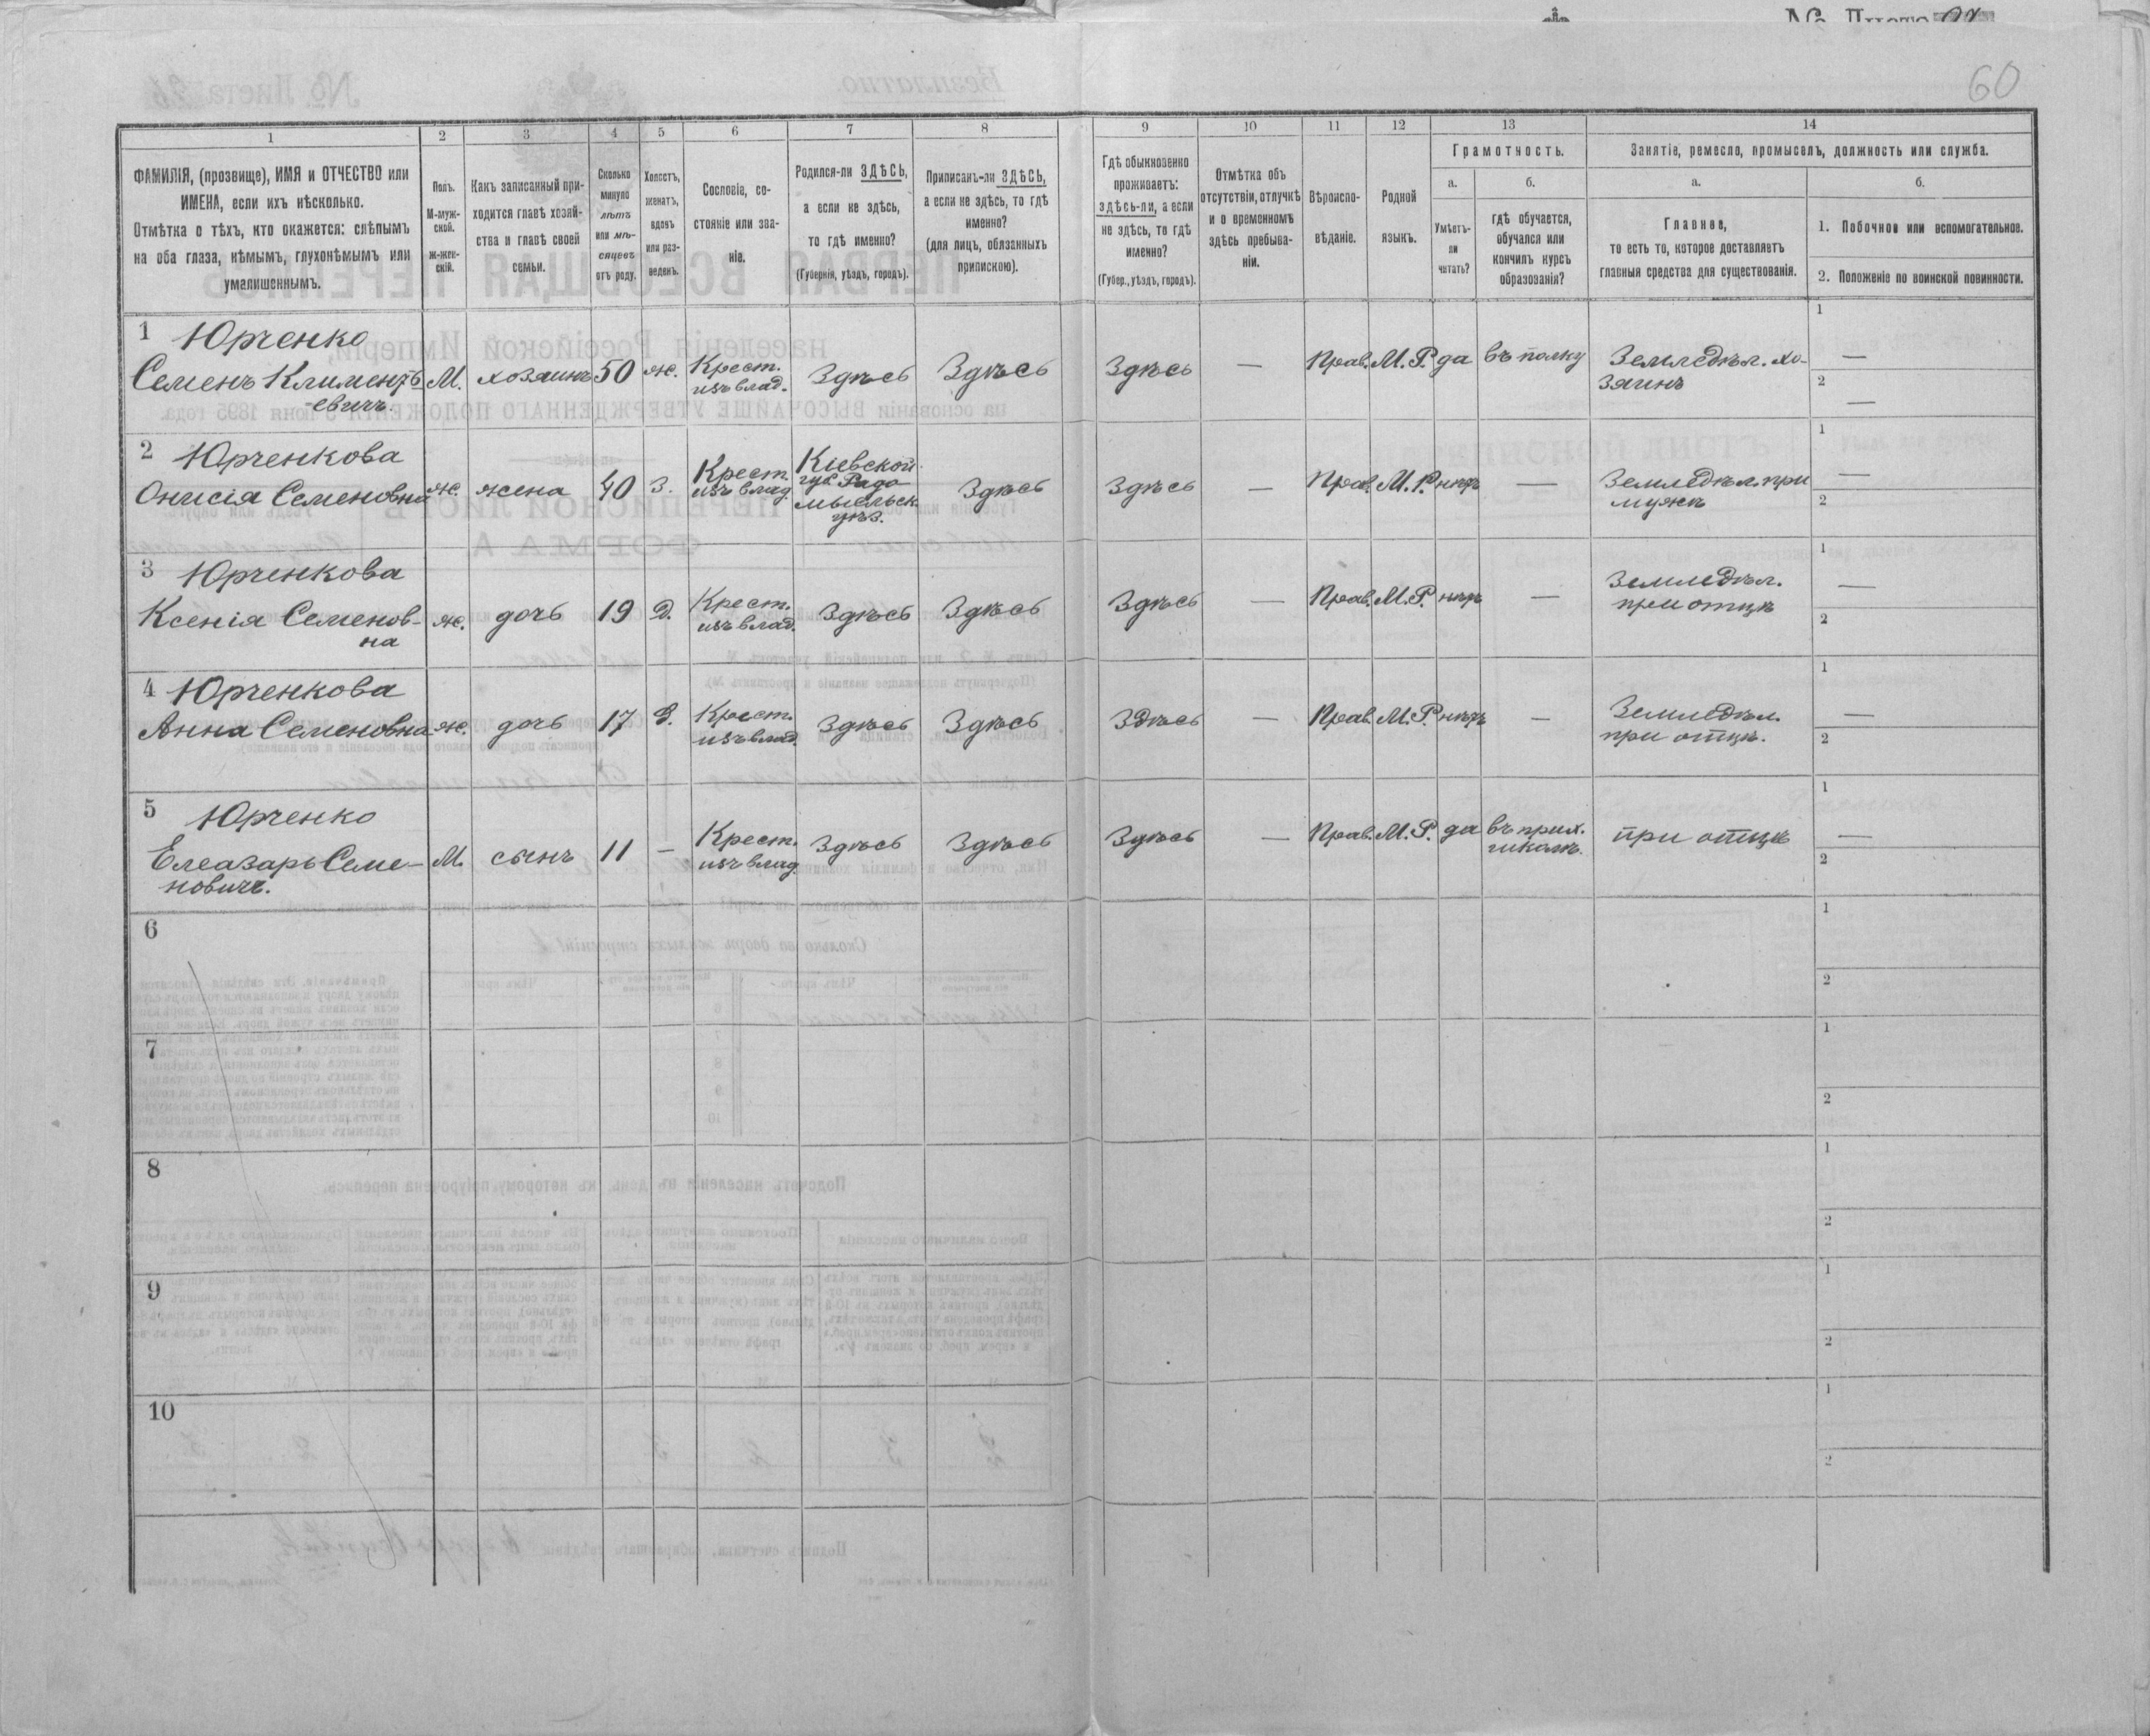 № Листа
60
1 2 3 4 5 6 7 8 9 10 11 12 13 14
ФАМИЛІЯ, (прозвище), ИМЯ и ОТЧЕСТВО или
ИМЕНА, если ихъ нѣсколько.
Отмѣтка о тѣхъ, кто окажется: слѣпымъ
на оба глаза, нѣмымъ, глухонѣмымъ или
умалишеннымъ.
Полъ.
М-муж-
ской.
Ж-жен-
скій.
Какъ записанный при-
ходится главѣ хозяй-
ства и главѣ своей
семьи.
Сколько
минуло
лѣтъ
или мѣ-
сяцевъ
отъ роду.
Холостъ,
женатъ,
вдовъ
или раз-
веденъ.
Сословіе, со-
стояніе или зва-
ніе.
Родился-ли ЗДѢСЬ,
а если не здѣсь,
то гдѣ именно?
(Губернія, уѣздъ, городъ).
Приписанъ-ли ЗДѢСЬ,
а если не здѣсь, то гдѣ
именно?
(для лицъ, обязанныхъ
припискою).
Гдѣ обыкновенно
проживаетъ:
здѣсь-ли, а если
не здѣсь, то гдѣ
именно?
(Губер., уѣздъ, городъ).
Отмѣтка объ
отсутствіи, отлучкѣ
и о временномъ
здѣсь пребыва-
ніи.
Вѣроиспо-
вѣданіе.
Родной
языкъ.
Грамотность.
а.
Умѣетъ-
ли
читать?
б.
гдѣ обучается,
обучался или
кончилъ курсъ
образованія?
Занятіе, ремесло, промыселъ, должность или служба.
а.
Главное,
то есть то, которое доставляетъ
главныя средства для существованія.
б.
1. Побочное или вспомогательное.
2. Положеніе по воинской повинности.
1 Юрченко
Семенъ Климентъ-
евичъ.
М.
хозяинъ
50
ж.
Крест.
изъ влад.
Здѣсь
Здѣсь
Здѣсь
—
Прав.
М. Р.
да
въ полку
Земледѣл. хо-
зяинъ
1 —
2 —
2 Юрченкова
Онисія Семеновна
ж.
жена
40
З.
Крест.
изъ влад.
Кіевской
губ. Радо-
мысльск.
уѣз.
Здѣсь
Здѣсь
—
Прав.
М. Р.
нѣтъ
—
Земледѣл. при
мужѣ
1 —
2
3 Юрченкова
Ксенія Семенов-
на
ж.
дочь
19
Д.
Крест.
изъ влад.
Здѣсь
Здѣсь
Здѣсь
—
Прав.
М. Р.
нѣтъ
—
Земледѣл.
при отцѣ
1 —
2
4 Юрченкова
Анна Семеновна
ж.
дочь
17
Д.
Крест.
изъ влад.
Здѣсь
Здѣсь
Здѣсь
—
Прав.
М. Р.
нѣтъ
—
Земледѣл.
при отцѣ.
1 —
2
5 Юрченко
Елеазаръ Семе-
новичъ.
М.
сынъ
11
—
Крест.
изъ влад.
Здѣсь
Здѣсь
Здѣсь
—
Прав.
М. Р.
да
въ прих.
школѣ.
при отцѣ
1 —
2
6
1
2
7
1
2
8
1
2
9
1
2
10
1
2